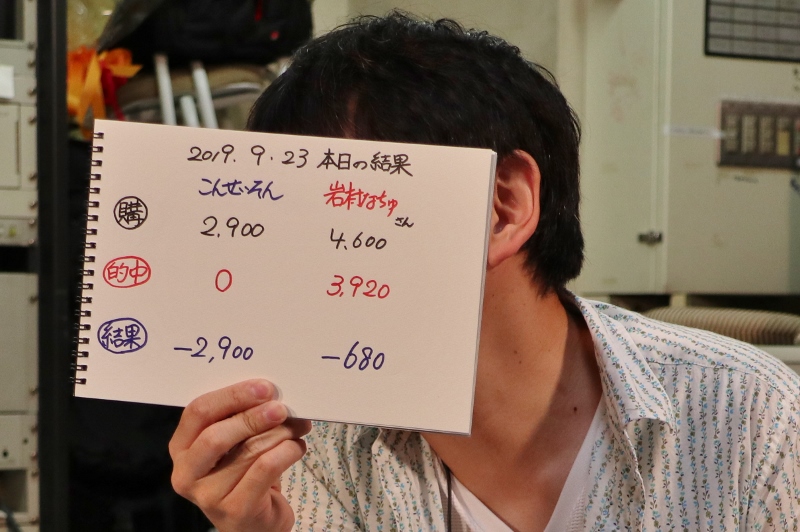 2019.9.23 本日の結果
こんせいそん 岩村なちゅさん
購 2,900 4,600
的中 0 3,920
結果 -2,900 -680